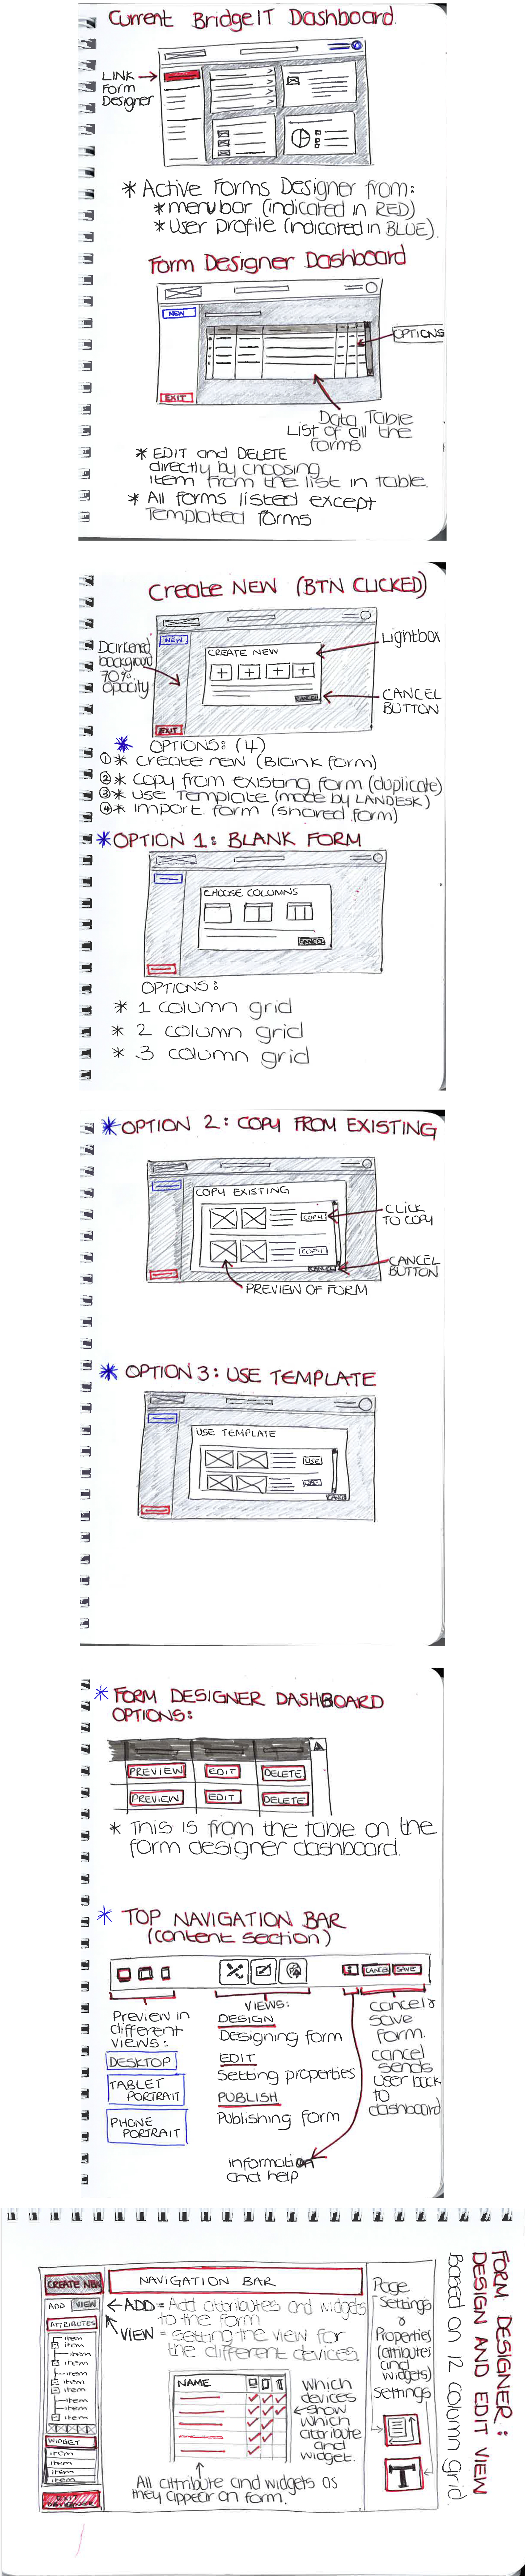 Current BridgeIT Dashboard
LINK
Form
Designer
* Active Forms Designer from:
* menubar (indicated in RED)
* User profile (indicated in BLUE).
Form Designer Dashboard
NEW
OPTIONS
EXIT
Data Table
List of all the
forms
* EDIT and DELETE
directly by choosing
item from the list in table.
* All forms listed except
Templated forms
Create NEW (BTN CLICKED)
NEW
Darkened
background
70%
opacity
CREATE NEW
Lightbox
CANCEL
CANCEL
BUTTON
EXIT
* OPTIONS: (4)
① * Create new (Blank form)
② * Copy from existing form (duplicate)
③ * Use Template (made by LANDESK)
④ * Import form (shared form)
* OPTION 1: BLANK FORM
CHOOSE COLUMNS
CANCEL
OPTIONS:
* 1 column grid
* 2 column grid
* 3 column grid
* OPTION 2: COPY FROM EXISTING
COPY EXISTING
COPY
CLICK
TO COPY
COPY
CANCEL
CANCEL
BUTTON
PREVIEW OF FORM
* OPTION 3: USE TEMPLATE
USE TEMPLATE
USE
USE
* FORM DESIGNER DASHBOARD
OPTIONS:
PREVIEW EDIT DELETE
PREVIEW EDIT DELETE
* This is from the table on the
form designer dashboard.
* TOP NAVIGATION BAR
(content section)
i CANCEL SAVE
Preview in
different
views:
DESKTOP
TABLET
PORTRAIT
PHONE
PORTRAIT
VIEWS:
DESIGN
Designing form
EDIT
Setting properties
PUBLISH
Publishing form
information
and help
cancel &
save
form.
cancel
sends
user back
to
dashboard
FORM DESIGNER:
DESIGN AND EDIT VIEW
Based on 12 column grid.
CREATE NEW
NAVIGATION BAR
ADD VIEW
ATTRIBUTES
item
item
item
item
item
item
item
item
WIDGET
item
item
item
← ADD = Add attributes and widgets
to the form
VIEW = setting the view for
the different devices.
NAME
which
devices
show
which
attribute
and
widget.
All attribute and widgets as
they appear on form.
Page
Settings
&
Properties
(attributes
and
widgets)
settings
T